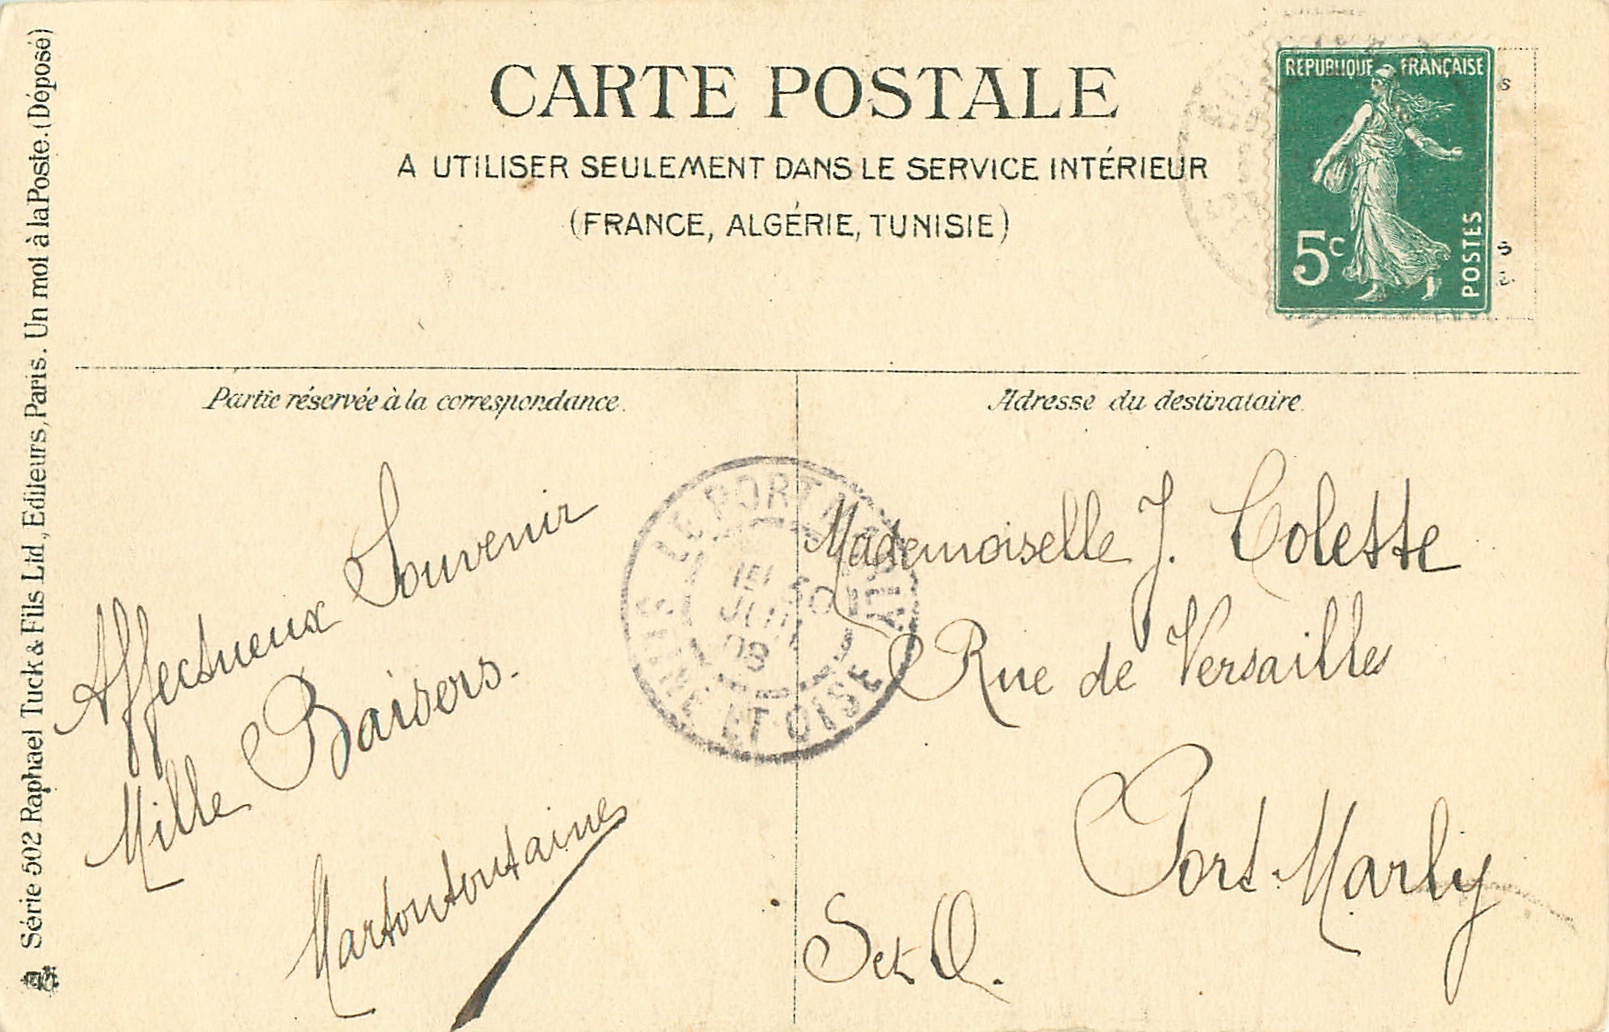 CARTE POSTALE
A UTILISER SEULEMENT DANS LE SERVICE INTÉRIEUR
(FRANCE, ALGÉRIE, TUNISIE)
RÉPUBLIQUE FRANÇAISE
5c
POSTES
Série 502 Raphael Tuck & Fils Ltd., Editeurs, Paris. Un mot à la Poste. (Déposé)
Partie réservée à la correspondance.
Affectueux Souvenir
Mille Baisers.
Martoutoutaine
LE PORT MARLY
15 30
JUIN
08
SEINE ET OISE
Adresse du destinataire.
Mademoiselle J. Colette
Rue de Versailles
Port-Marly
S et O.